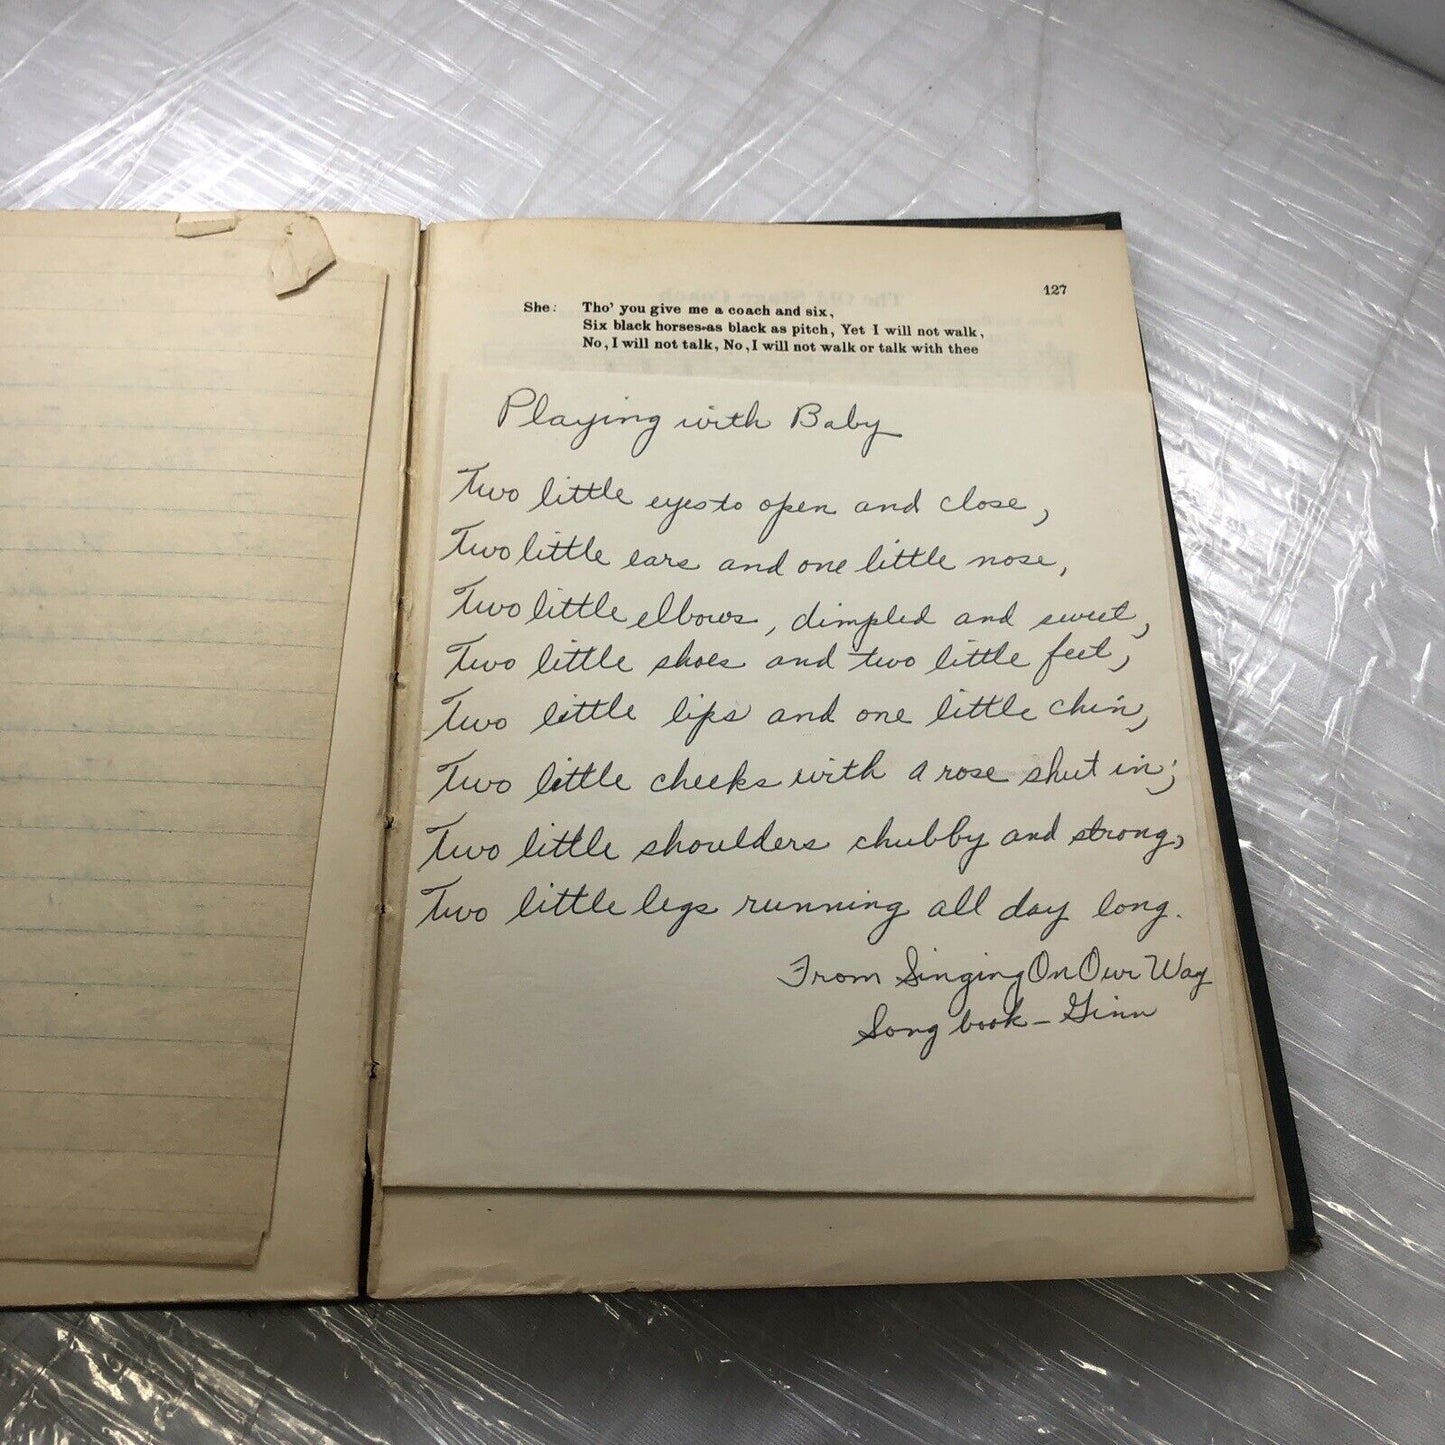 127
She: Tho' you give me a coach and six,
Six black horses as black as pitch, Yet I will not walk,
No, I will not talk, No, I will not walk or talk with thee
Playing with Baby
Two little eyes to open and close,
Two little ears and one little nose,
Two little elbows, dimpled and sweet,
Two little shoes and two little feet,
Two little lips and one little chin,
Two little cheeks with a rose shut in;
Two little shoulders chubby and strong,
Two little legs running all day long.
From Singing On Our Way
Song book – Ginn